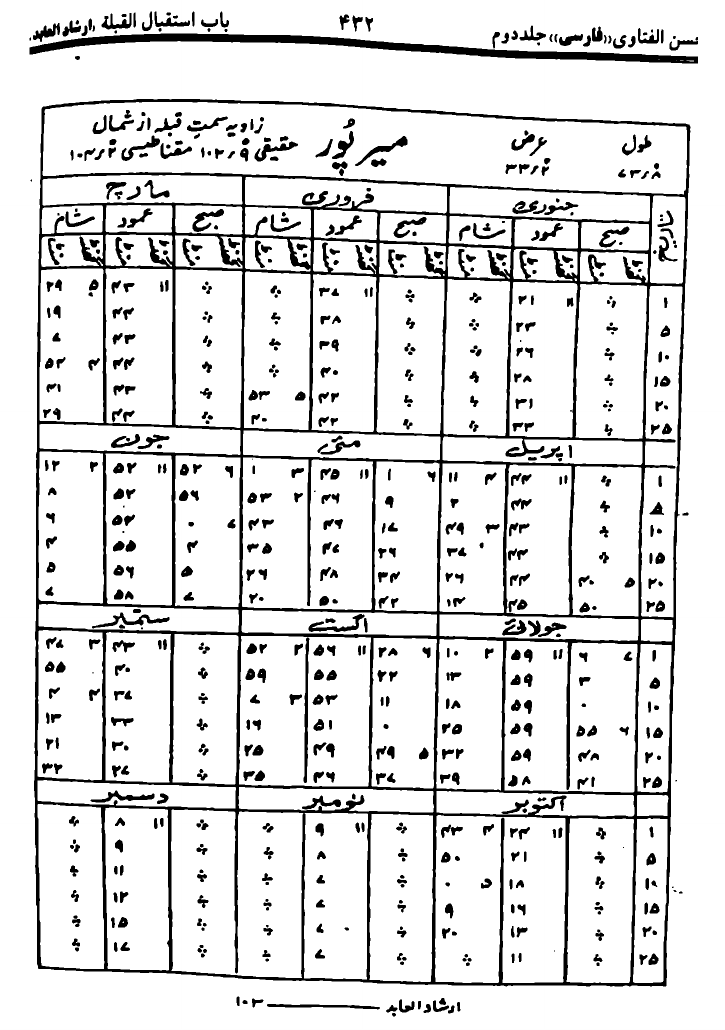 حسن الفتاوى «فارسى» جلد دوم ۴۳۲ باب استقبال القبلة (ارشاد العابد)
طول عرض میرپور زاویہ سمت قبلہ از شمال
۷۳٫۸ ۳۳٫۲ حقیقی ۱۰۲٫۹ مقناطیسی ۱۰۴٫۲
جنوری فروری مارچ
صبح عمود شام صبح عمود شام صبح عمود شام
گھنٹہ منٹ گھنٹہ منٹ گھنٹہ منٹ گھنٹہ منٹ گھنٹہ منٹ گھنٹہ منٹ گھنٹہ منٹ گھنٹہ منٹ گھنٹہ منٹ
۱ ÷ ۱۱ ۲۱ ÷ ÷ ۱۱ ۳۷ ÷ ÷ ۱۱ ۴۳ ۵ ۲۹
۵ ÷ ۲۳ ÷ ÷ ۳۸ ÷ ÷ ۴۴ ۱۹
۱۰ ÷ ۲۶ ÷ ÷ ۳۹ ÷ ÷ ۴۳ ۷
۱۵ ÷ ۲۸ ÷ ÷ ۴۰ ÷ ÷ ۴۴ ۴ ۵۴
۲۰ ÷ ۳۱ ÷ ÷ ۴۲ ۵ ۵۳ ÷ ۴۳ ۴۱
۲۵ ÷ ۳۳ ÷ ÷ ۴۲ ۴۰ ÷ ۴۴ ۲۹
اپریل مئی جون
۱ ÷ ۱۱ ۴۴ ۴ ۱۱ ۶ ۱ ۱۱ ۴۵ ۳ ۱ ۶ ۵۲ ۱۱ ۵۲ ۲ ۱۲
۵ ÷ ۴۴ ۲ ۹ ۴۶ ۲ ۵۳ ۵۶ ۵۲ ۸
۱۰ ÷ ۴۳ ۳ ۴۹ ۱۷ ۴۶ ۴۳ ۷ ۰ ۵۴ ۶
۱۵ ÷ ۴۴ ۳۷ ۲۶ ۴۷ ۳۵ ۴ ۵۵ ۴
۲۰ ۵ ۴۰ ۴۴ ۲۶ ۳۴ ۴۸ ۲۶ ۵ ۵۶ ۵
۲۵ ۵۰ ۴۵ ۱۴ ۴۲ ۵۰ ۲۰ ۷ ۵۸ ۷
جولائی اگست ستمبر
۱ ۷ ۶ ۱۱ ۵۹ ۲ ۱۰ ۶ ۲۸ ۱۱ ۵۶ ۲ ۵۲ ÷ ۱۱ ۴۳ ۳ ۴۷
۵ ۳ ۵۹ ۱۳ ۲۲ ۵۵ ۵۹ ÷ ۴۰ ۵۵
۱۰ ۰ ۵۹ ۱۸ ۱۱ ۵۳ ۳ ۷ ÷ ۳۷ ۴ ۴
۱۵ ۶ ۵۵ ۵۹ ۲۵ ۰ ۵۱ ۱۶ ÷ ۳۳ ۱۳
۲۰ ۴۸ ۵۹ ۳۲ ۵ ۴۹ ۴۹ ۲۵ ÷ ۳۰ ۲۱
۲۵ ۴۱ ۵۸ ۳۹ ۳۷ ۴۶ ۳۵ ÷ ۲۷ ۳۲
اکتوبر نومبر دسمبر
۱ ÷ ۱۱ ۲۴ ۴ ۴۳ ÷ ۱۱ ۹ ÷ ÷ ۱۱ ۸ ÷
۵ ÷ ۲۱ ۵۰ ÷ ۸ ÷ ÷ ۹ ÷
۱۰ ÷ ۱۸ ۵ ۰ ÷ ۷ ÷ ÷ ۱۱ ÷
۱۵ ÷ ۱۶ ۹ ÷ ۷ ÷ ÷ ۱۲ ÷
۲۰ ÷ ۱۳ ۲۰ ÷ ۷ ÷ ÷ ۱۵ ÷
۲۵ ÷ ۱۱ ÷ ÷ ۷ ÷ ÷ ۱۷ ÷
ارشاد العابد ــــــــ ۱۰۳